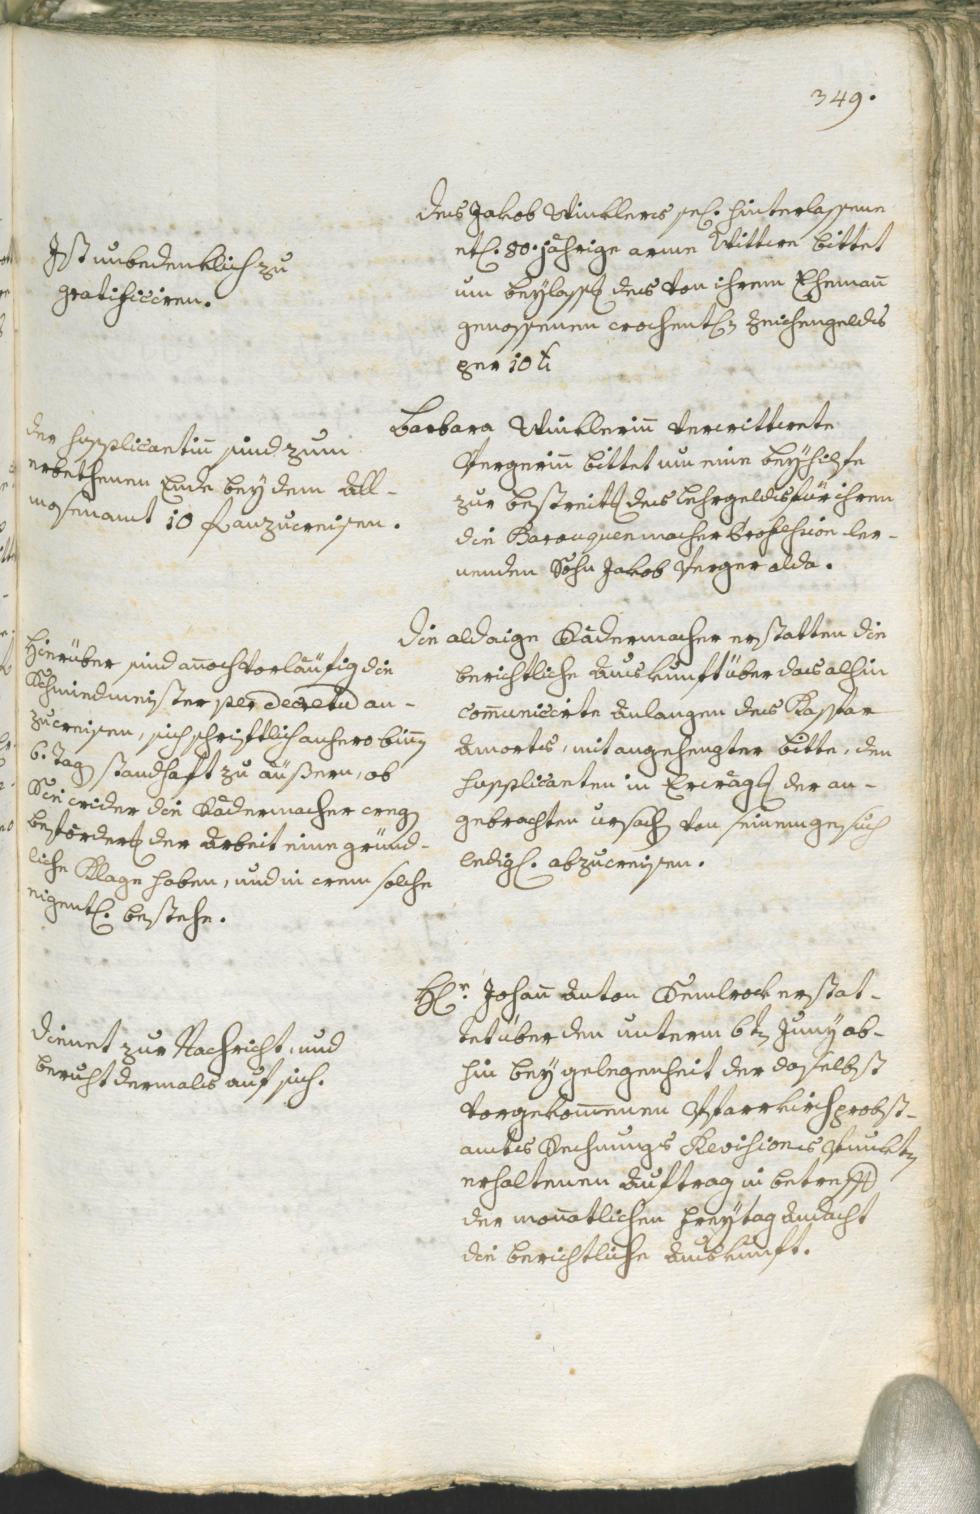 349.
Des Jakob Winklers sel. hinterlassene
etl. 80. jährige arme Wittwe bittet
um beylassg des von ihrem Ehemañ
genossenen wochentl. Zeichengelds
per 10 x
Ist unbedenklich zu
gratificiren.
Barbara Winklerin verwittwete
Pergerin bittet um eine beyhilfe
zur bestreitg des Lehrgelds für ihren
die Barouquenmacher Profession ler-
nenden Sohn Jakob Perger alda.
der Supplicantin sind zum
erbethenen Ende bey dem All-
mosenamt 10 f anzuweisen.
Die aldaige Rädermacher erstatten die
berichtliche Auskunft über das alhin
com̄unicirte Anlangen des Kaspar
Amorts, mit angehengter bitte, den
Supplicanten in Erwägg der an-
gebrachten ursach von seinem gesuch
ledigl. abzuweisen.
Hierüber sind añoch vorläufig die
Schmiedmeister per Decretū an-
zuweisen, sich schriftlich anhero biñen
6. tag standhaft zu äußern, ob
Sie wider die Rädermacher weg
beförderg der Arbeit eine gründ-
liche Klage haben, und in wem solche
eigentl. bestehe.
Hr. Johañ Anton erstat-
tet über den unterm 6ten Juny ab-
hin bey gelegenheit der daselbst
vorgekom̄enen Pfarrkirchprobst-
amts Rechnungs Revisions Punkten
erhaltenen Auftrag in betreff
der monatlichen Freytag Andacht
die berichtliche Auskunft.
Dienet zur Nachricht, und
beruht dermals auf sich.